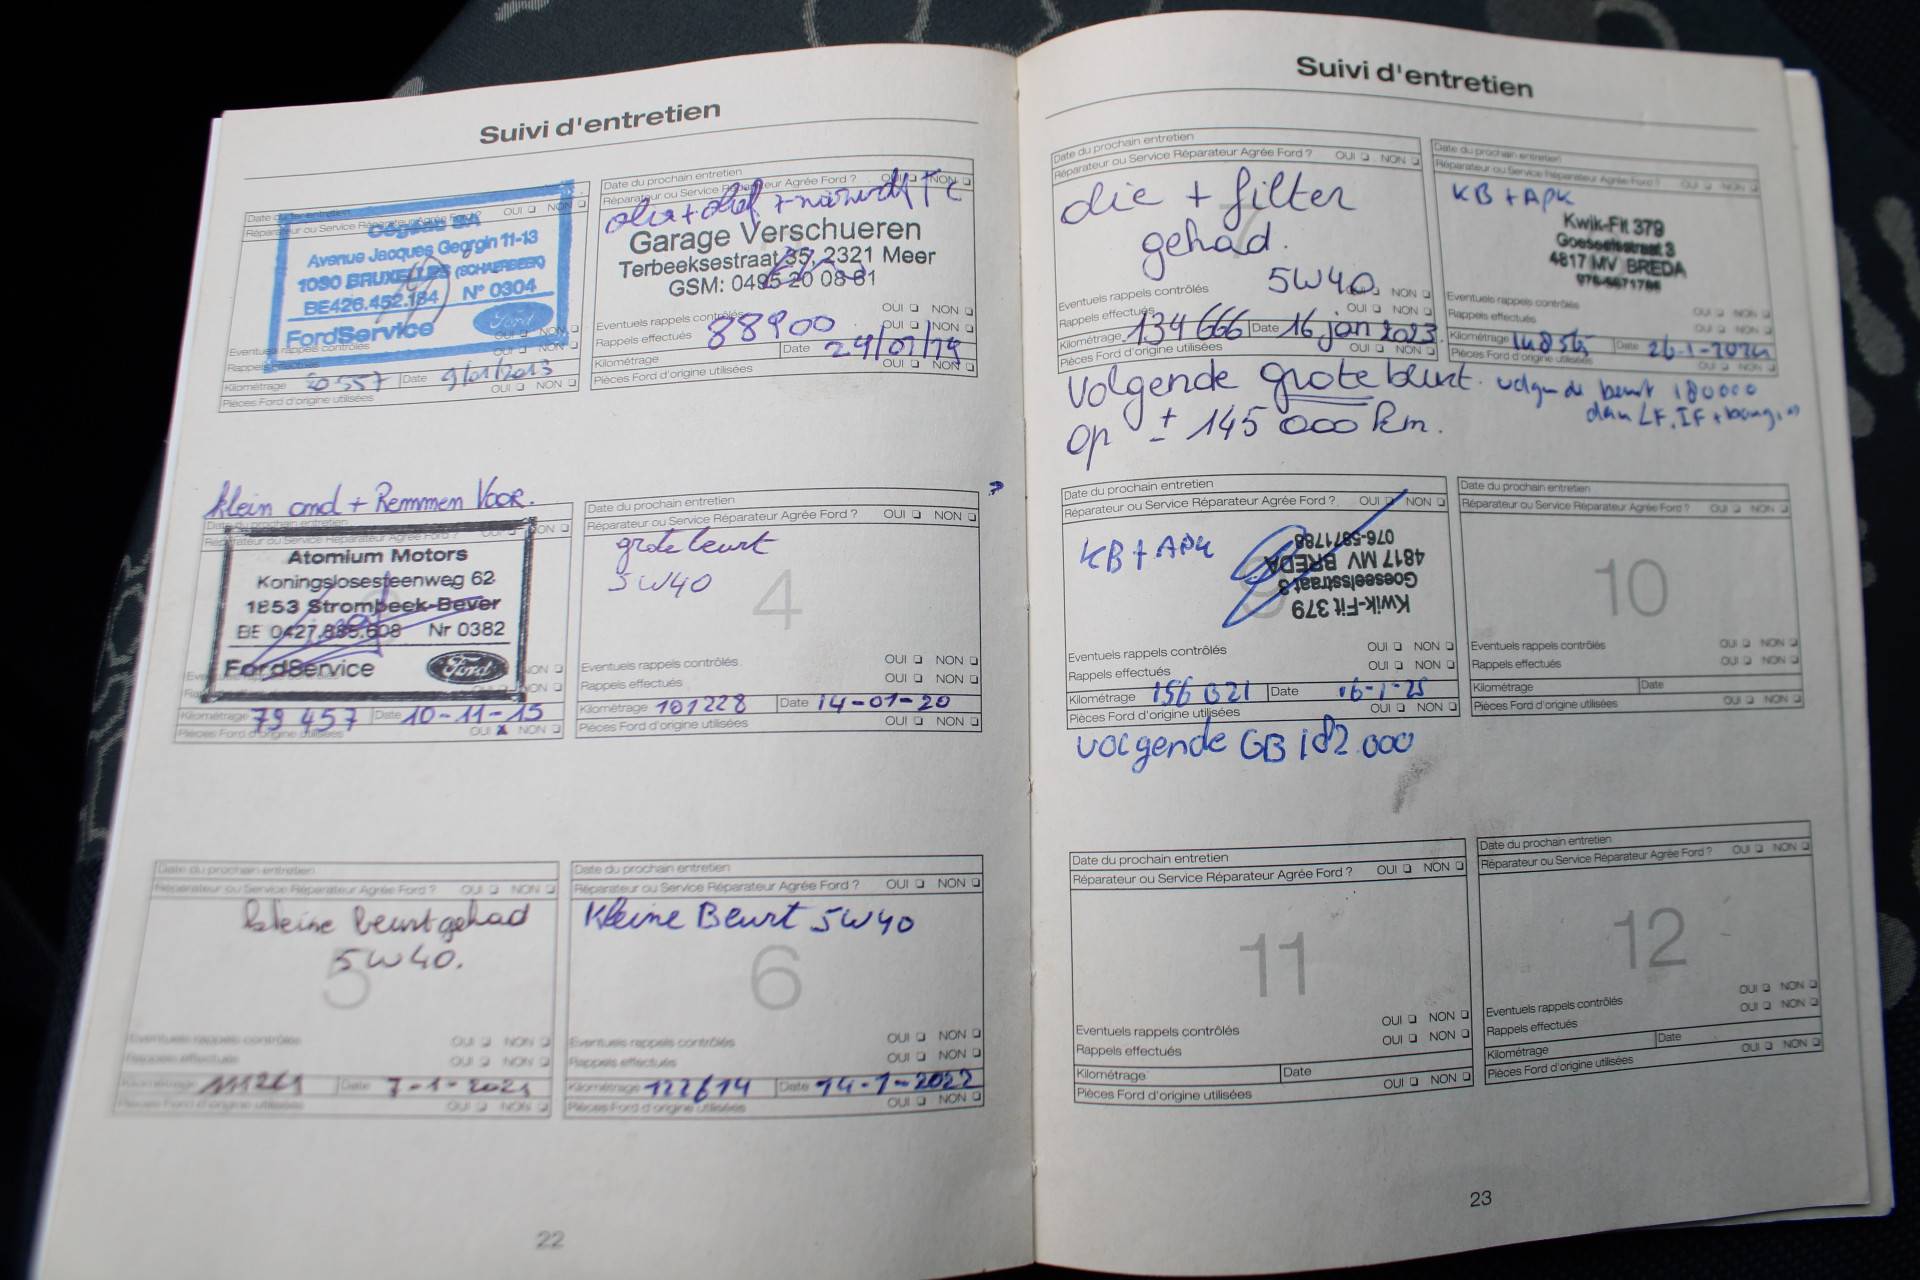 Suivi d'entretien
Date du prochain entretien
Réparateur ou Service Réparateur Agrée Ford ? OUI NON
Avenue Jacques Georgin 11-13
1030 BRUXELLES (SCHAERBEEK)
BE426.452.184 N° 0304
FordService Ford
Eventuels rappels contrôlés OUI NON
Rappels effectués OUI NON
Kilométrage Date 9/01/2013
Pièces Ford d'origine utilisées OUI NON
Date du prochain entretien
Réparateur ou Service Réparateur Agrée Ford ? OUI NON
Garage Verschueren
Terbeeksestraat 35, 2321 Meer
GSM: 0495 20 08 81
Eventuels rappels contrôlés OUI NON
Rappels effectués OUI NON
88900
Kilométrage Date
Pièces Ford d'origine utilisées OUI NON
klein ond + Remmen Voor.
Date du prochain entretien OUI NON
Réparateur ou Service Réparateur Agrée Ford ? OUI NON
Atomium Motors
Koningslosesteenweg 62
1853 Strombeek-Bever
BE 0427.885.608 Nr 0382
FordService Ford
NON
Kilométrage 79 457 Date 10-11-15
Pièces Ford d'origine utilisées OUI x NON
Date du prochain entretien
Réparateur ou Service Réparateur Agrée Ford ? OUI NON
grote beurt
5W40
4
Eventuels rappels contrôlés OUI NON
Rappels effectués OUI NON
Kilométrage 101228 Date 14-01-20
Pièces Ford d'origine utilisées OUI NON
Date du prochain entretien
Réparateur ou Service Réparateur Agrée Ford ? OUI NON
kleine beurt gehad
5W40.
5
Eventuels rappels contrôlés OUI NON
Rappels effectués OUI NON
Kilométrage 111261 Date 7-1-2021
Pièces Ford d'origine utilisées OUI NON
Date du prochain entretien
Réparateur ou Service Réparateur Agrée Ford ? OUI NON
Kleine Beurt 5W40
6
Eventuels rappels contrôlés OUI NON
Rappels effectués OUI NON
Kilométrage 122614 Date 14-1-2022
Pièces Ford d'origine utilisées OUI NON
22
Suivi d'entretien
Date du prochain entretien
Réparateur ou Service Réparateur Agrée Ford ? OUI NON
olie + filter
7
gehad.
5W40
Eventuels rappels contrôlés OUI NON
Rappels effectués OUI NON
Kilométrage 134666 Date 16 jan 2023
Pièces Ford d'origine utilisées OUI NON
Volgende grote beurt.
op ± 145 000 km.
Date du prochain entretien
Réparateur ou Service Réparateur Agrée Ford ? OUI NON
KB + APK
Kwik-Fit 379
Goeseelsstraat 3
4817 MV BREDA
076-5871788
Eventuels rappels contrôlés OUI NON
Rappels effectués OUI NON
Kilométrage Date 26-1-2024
Pièces Ford d'origine utilisées OUI NON
volgende beurt 180000
dan LF, IF +
Date du prochain entretien
Réparateur ou Service Réparateur Agrée Ford ? OUI NON
KB + APK
9
Kwik-Fit 379
Goeseelsstraat 3
4817 MV BREDA
076-5871788
Eventuels rappels contrôlés OUI NON
Rappels effectués OUI NON
Kilométrage 156 021 Date 16-1-25
Pièces Ford d'origine utilisées OUI NON
volgende GB 182.000
Date du prochain entretien
Réparateur ou Service Réparateur Agrée Ford ? OUI NON
10
Eventuels rappels contrôlés OUI NON
Rappels effectués OUI NON
Kilométrage Date
Pièces Ford d'origine utilisées OUI NON
Date du prochain entretien
Réparateur ou Service Réparateur Agrée Ford ? OUI NON
11
Eventuels rappels contrôlés OUI NON
Rappels effectués OUI NON
Kilométrage Date
Pièces Ford d'origine utilisées OUI NON
Date du prochain entretien
Réparateur ou Service Réparateur Agrée Ford ? OUI NON
12
Eventuels rappels contrôlés OUI NON
Rappels effectués OUI NON
Kilométrage Date
Pièces Ford d'origine utilisées OUI NON
23